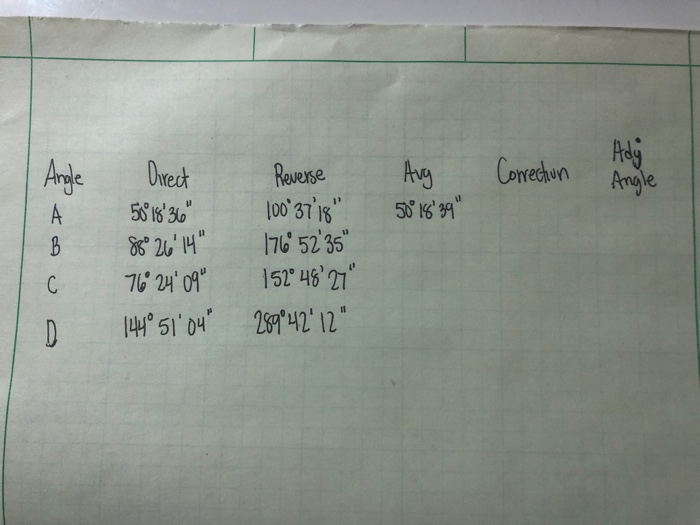 Angle Direct Reverse Avg Correction Adj Angle
A 50°18'36" 100°37'18" 50°18'39"
B 88°26'14" 176°52'35"
C 76°24'09" 152°48'27"
D 144°51'04" 289°42'12"